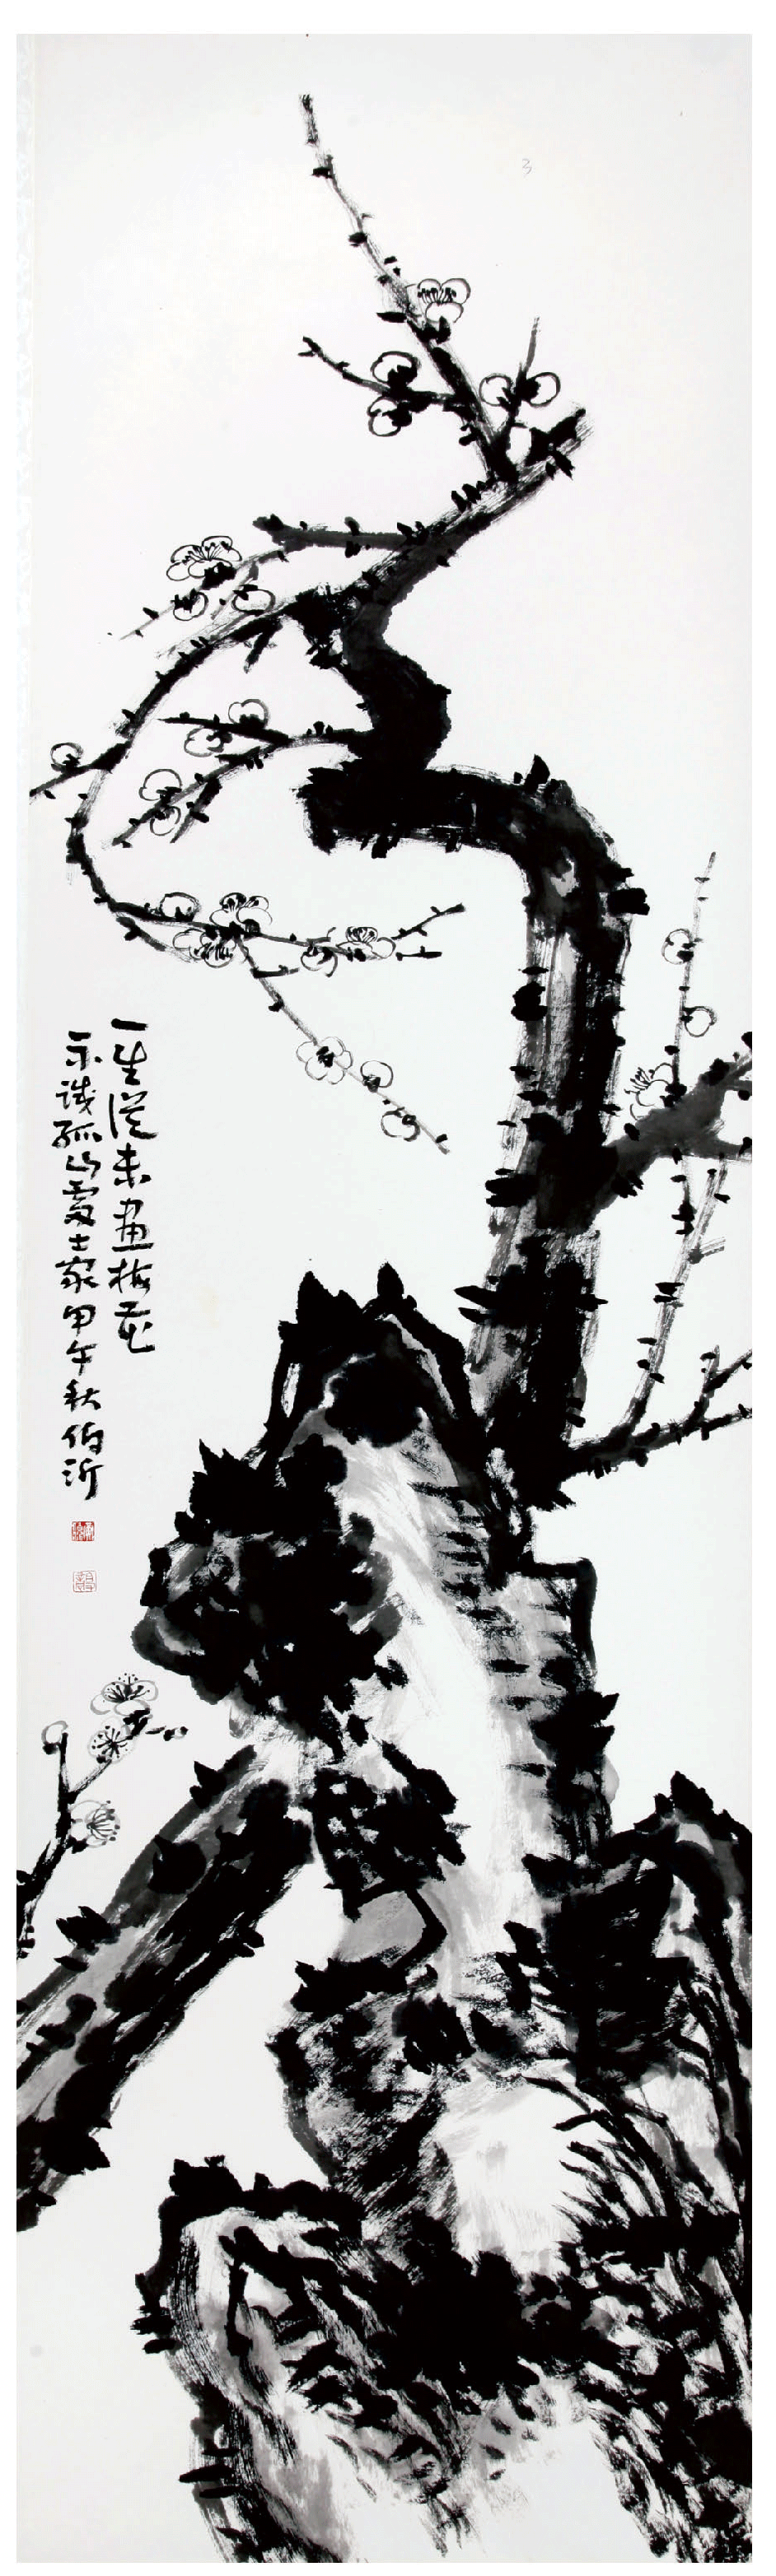 一生從未畫梅花
不識孤山處士家甲午秋伯沂